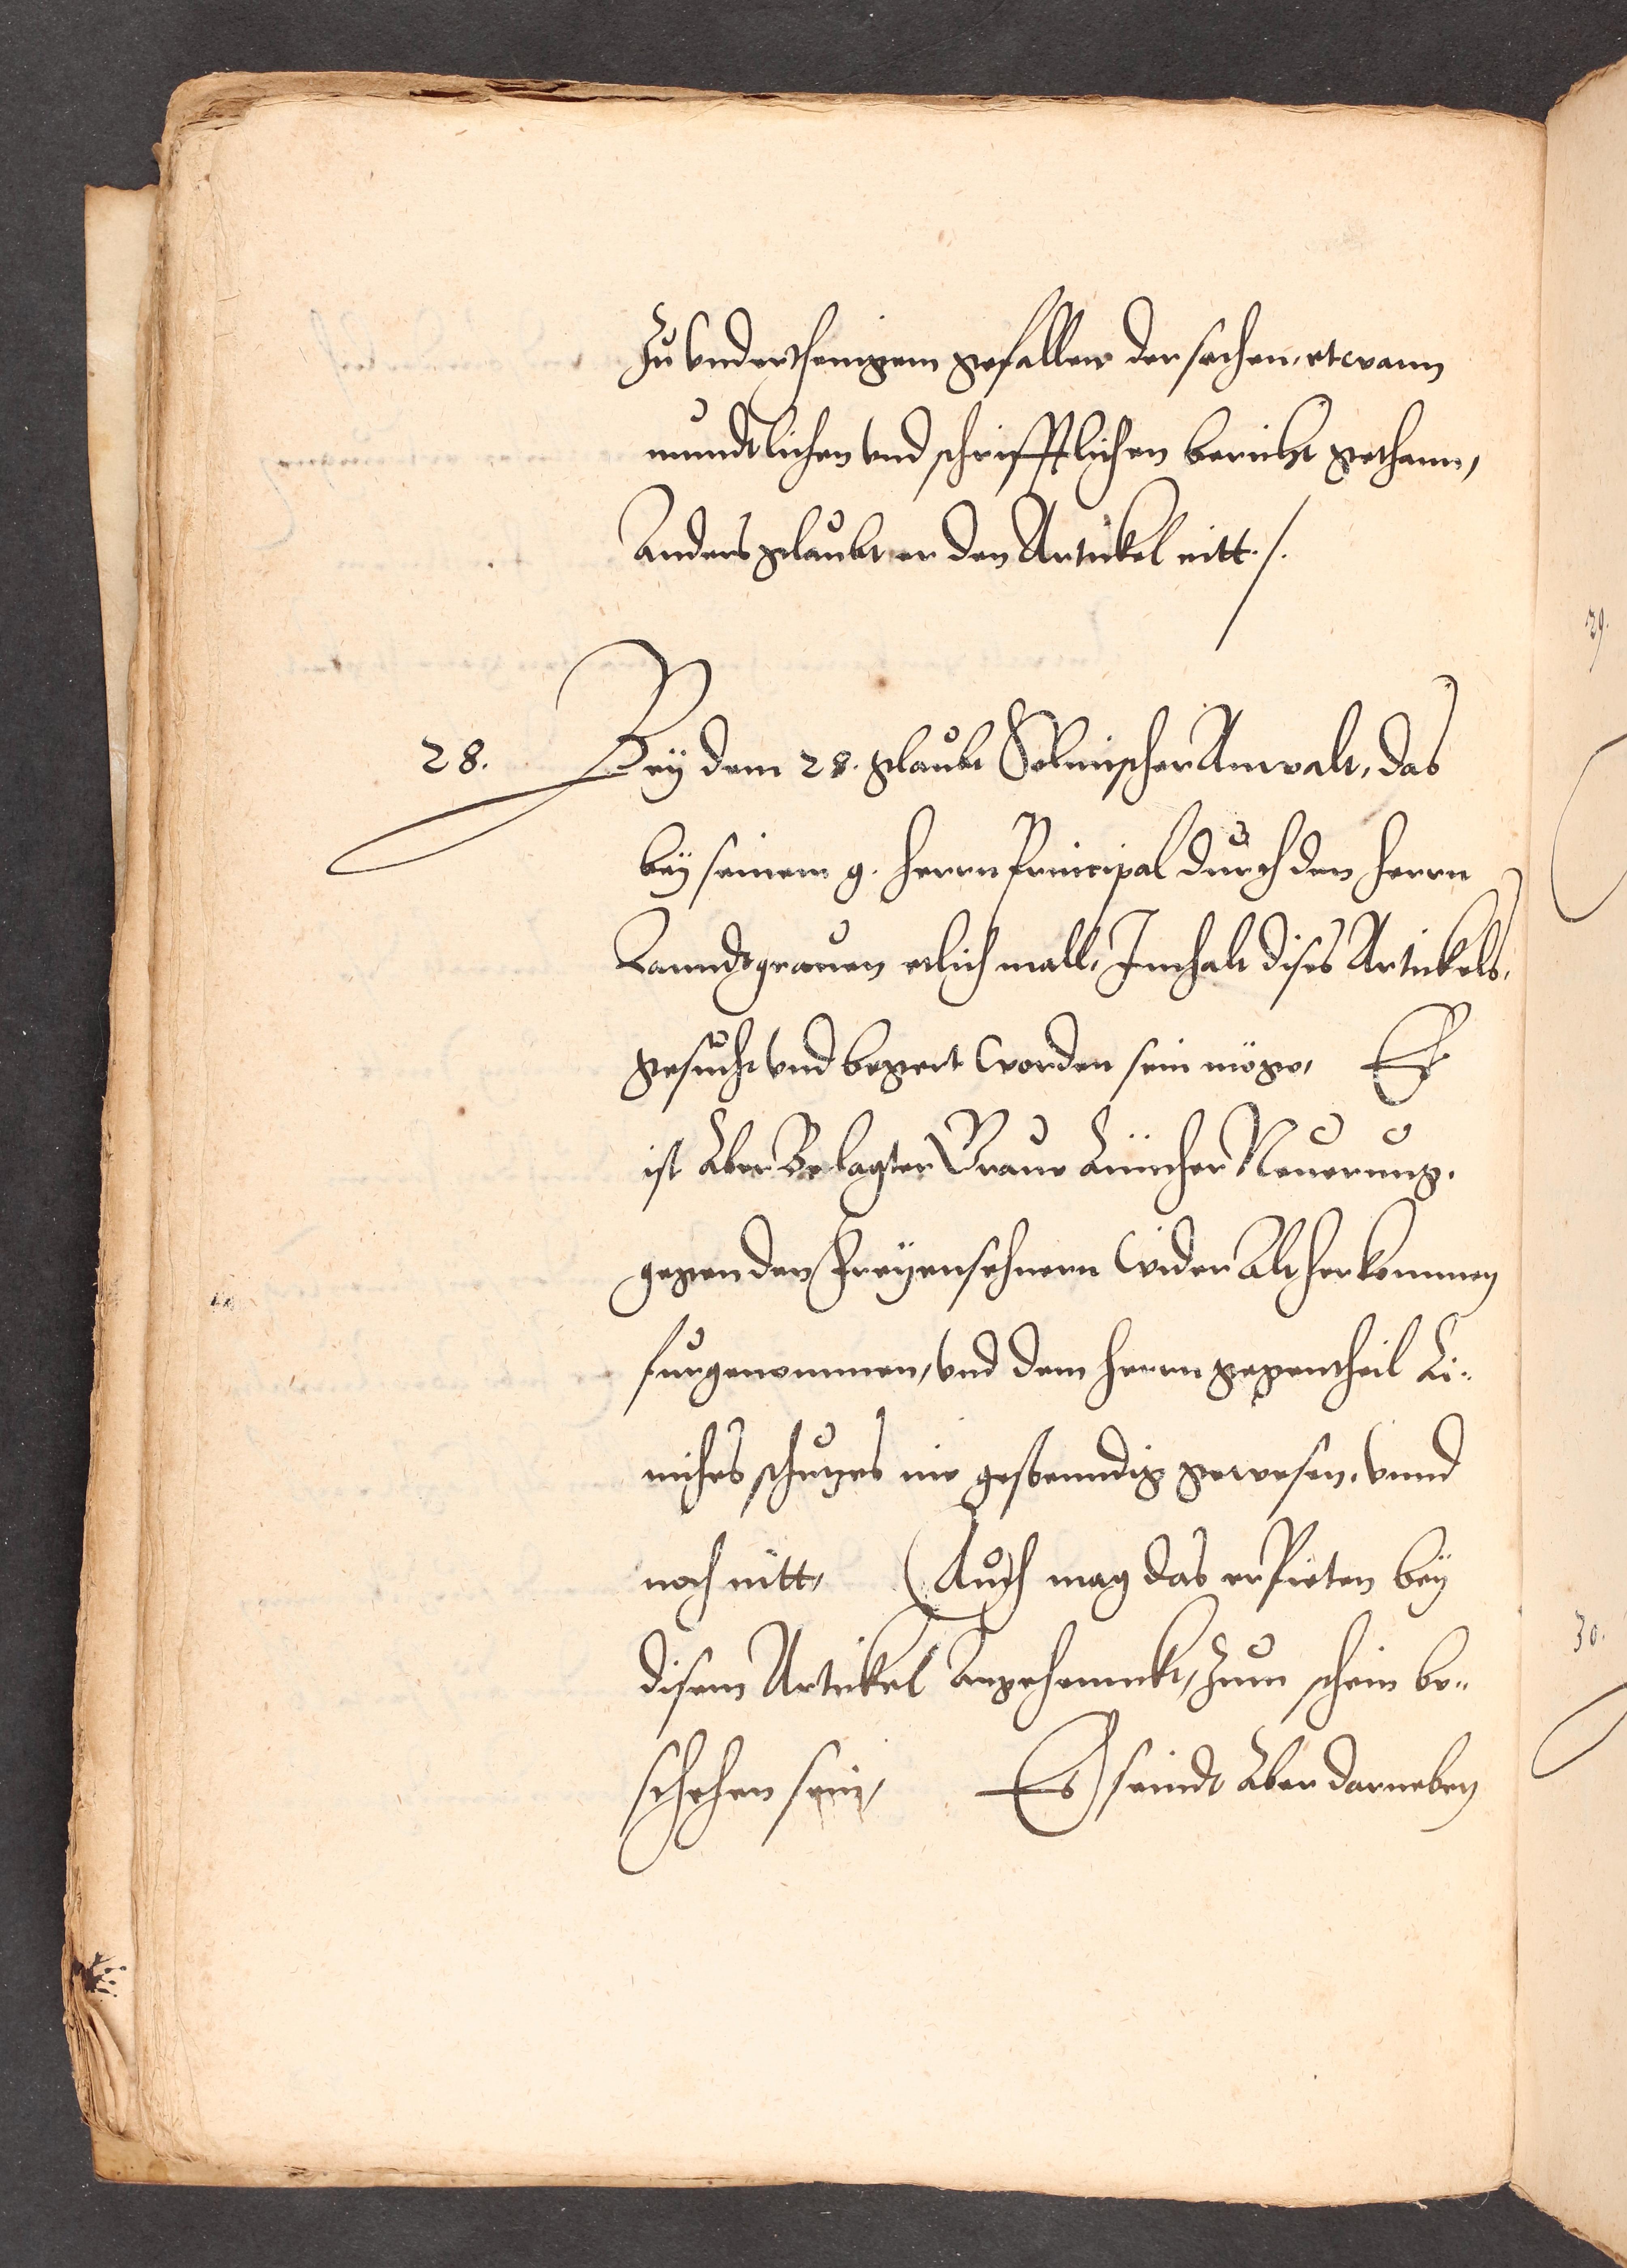 Zu vnderthenigem gefallen der sachen, etwann
mundtlichen vnd schrifftlichen bericht gethann,
Anders glaubt er den Artickel nitt /.
28. Bey dem 28. glaubt Solmischer Anwalt, das
bey seinem g. herrn Principal durch den herrn
Lanndtgrauen etlich mall, Innhalt dises Artickels,
gesucht vnd begert worden sein möge, Er
ist aber Beclagter Graue Einicher Neuerung,
gegen den Freyenseheern wider Alt herkommen
furgenommen, vnd dem herrn gegentheil Ei-
niches schutzes nie gestenndig gewesen, vnnd
noch nitt, Auch mag das erPieten bey
disem Artickel Angehennckt, Zum schein be-
schehen sein, Es seindt aber darneben
29.
30.